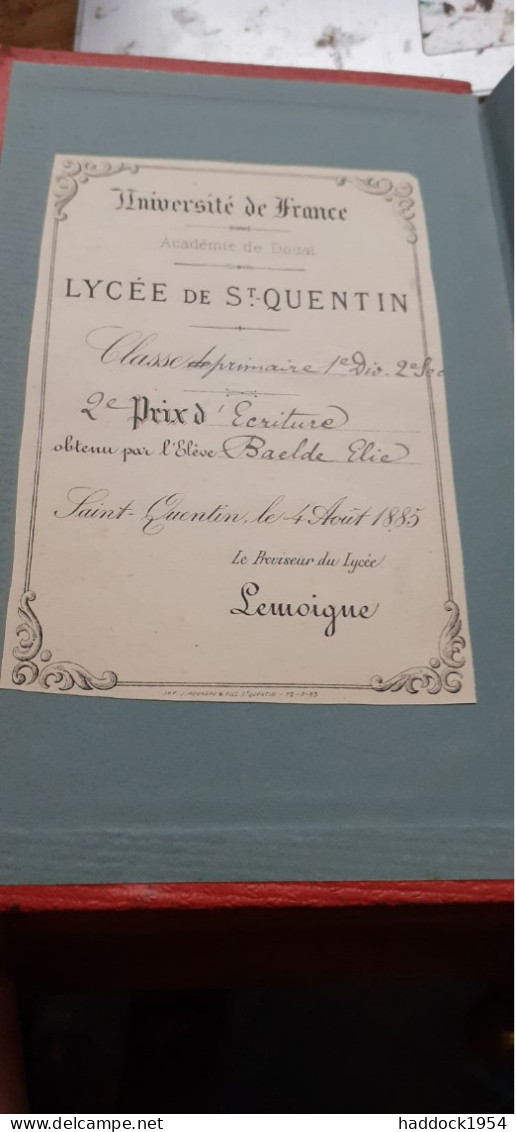 Université de France
Académie de Douai
LYCÉE DE ST-QUENTIN
Classe de primaire 1e Div. 2e Sec
2e Prix d'Ecriture
obtenu par l'Elève Baelde Elie
Saint-Quentin, le 4 Août 1885
Le Proviseur du Lycée
Lemoigne
IMP. J. & FILS, ST QUENTIN
haddock1954